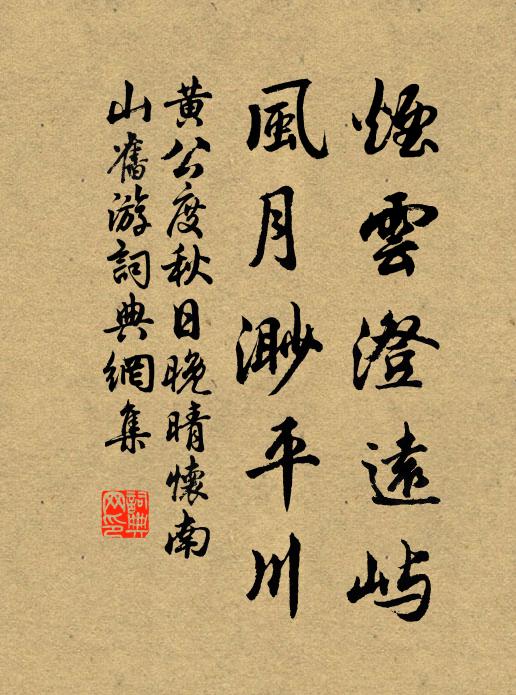 煙雲澄遠嶼
風月渺平川
黃公度秋日晚晴懷南
山舊游詞典網集
詞典網印